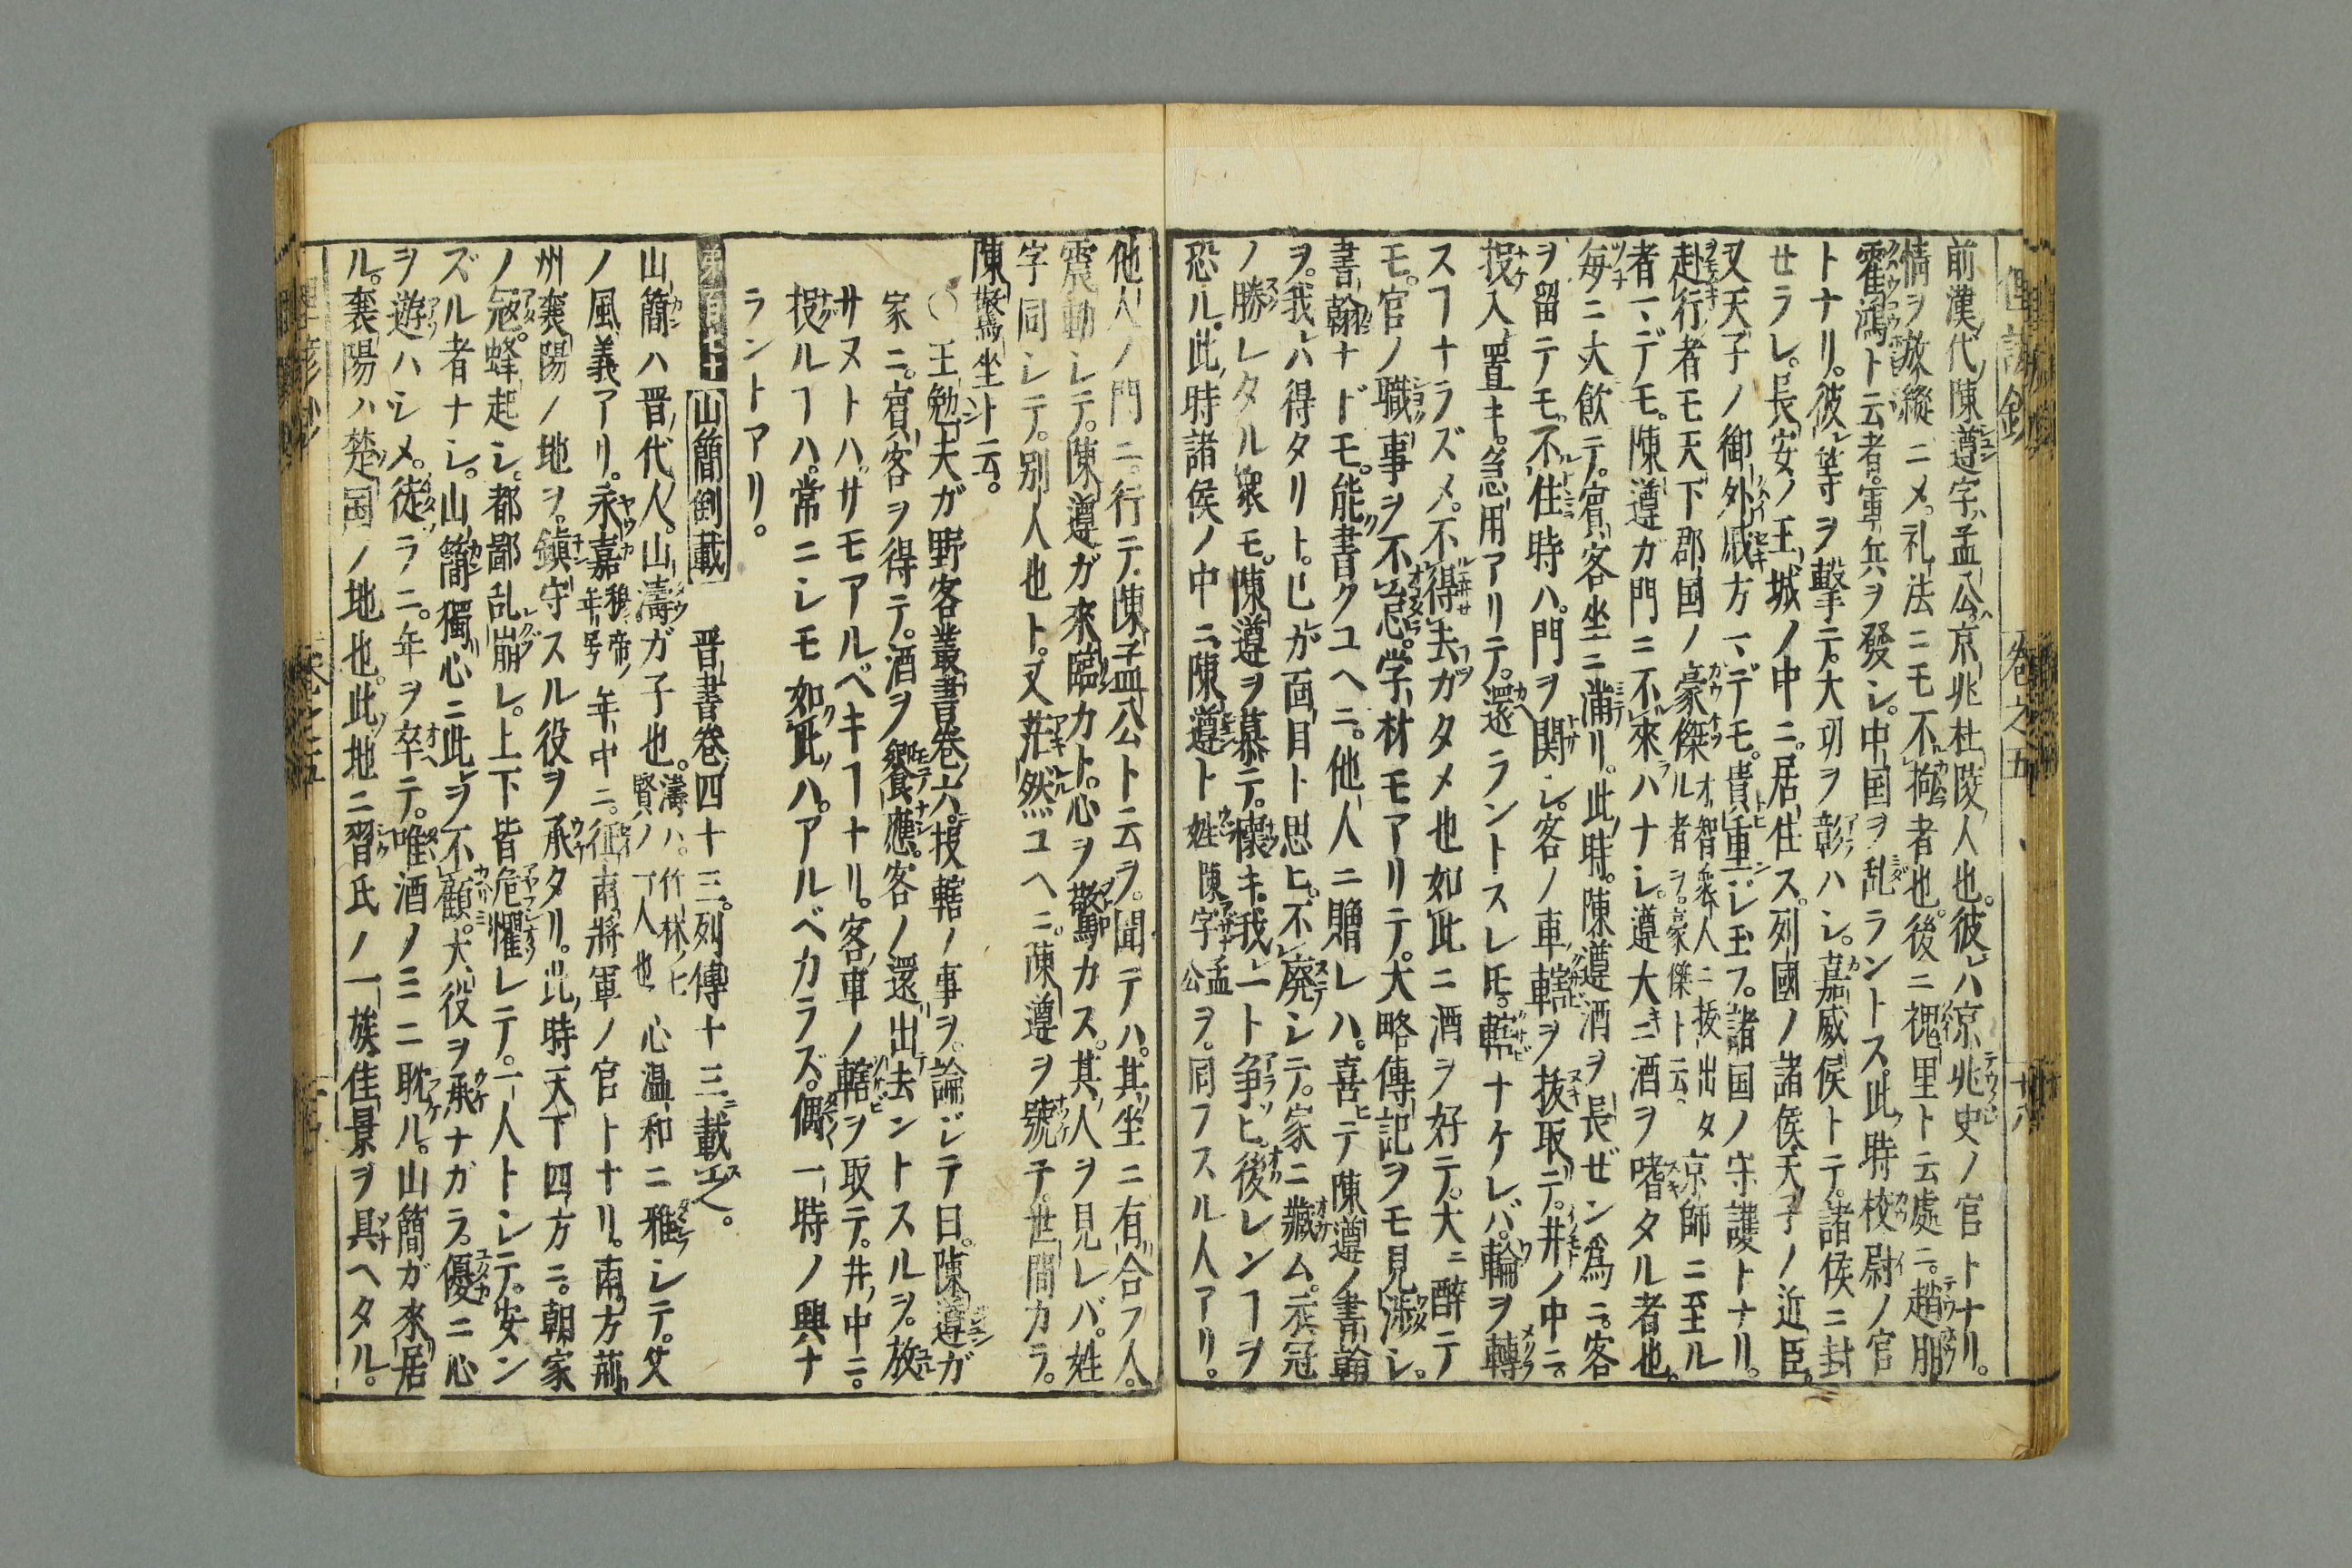 前漢ノ代陳遵字ハ孟公ハ京兆杜陵ノ人也。彼レハ京兆史ノ官トナリ。
情ヲ放縱ニメ。礼法ニモ不拘者也。後ニ槐里ト云處ニ。趙朋
霍鴻ト云者。軍兵ヲ發シ。中国ヲ乱ラントス。此ノ時校尉ノ官
トナリ。彼レ等ヲ擊テ。大功ヲ彰ハシ。嘉威侯トテ。諸侯ニ封
セラレ。長安ノ王城ノ中ニ。居住ス。列國ノ諸侯天子ノ近臣。
又天子ノ御外戚方マデモ。貴ヒ重ンジ玉フ。諸国ノ守護トナリ。
赴行者モ天下郡国ノ豪傑ル者ヲ。豪傑ト云。才智衆人ニ抜出タ京師ニ至ル
者マデモ。陳遵ガ門ニ不來ハナシ。遵大キニ酒ヲ嗜タル者也。
毎ニ大飲テ。賓客坐ニ滿リ。此時。陳遵酒ヲ長ゼン爲ニ。客
ヲ留テモ。不住時ハ。門ヲ関シ。客ノ車ノ轄ヲ抜取テ。井ノ中ニ。
投入置キ。急用アリテ。還ラントスレ𪜈。轄ナケレバ。輪ヲ轉
スヿナラズメ。不得去ガタメ也如此ニ酒ヲ好テ。大ニ醉テ
モ。官ノ職事ヲ不怠。学材モアリテ。大略傳記ヲモ見渉シ。
書翰ナドモ。能書クユヘニ。他人ニ贈レハ。喜テ陳遵ノ書翰
ヲ。我レハ得タリト。己ガ面目ト思ヒ。不廃シテ。家ニ藏ム。衣冠
ノ勝レタル衆モ。陳遵ヲ慕テ。懐キ。我レ一ト爭ヒ。後レンヿヲ
恐ル。此時諸侯ノ中ニ。陳遵ト姓陳字孟公ヲ。同フスル人アリ。
他人ノ門ニ。行テ陳孟公ト云ヲ。聞テハ。其坐ニ有合フ人。
震動シテ。陳遵ガ來臨カト。心ヲ驚カス。其人ヲ見レバ。姓
字同シテ。別人也ト。又茫然ユヘニ。陳遵ヲ號テ。世間カラ。
陳驚坐ト云。
○王勉夫ガ野客叢書巻六。投轄ノ事ヲ。論ジテ曰。陳遵ガ
家ニ。賓客ヲ得テ。酒ヲ饗應。客ノ還リ出去ントスルヲ。放
サヌトハ。サモアルベキヿナリ。客ノ車ノ轄ヲ取テ。井ノ中ニ。
投ルヿハ。常ニシモ如此ハ。アルベカラズ。偶一時ノ興ナ
ラントアリ。
山簡倒載　晋書巻四十三。列傳十三ニ載之。
山簡ハ晋ノ代ノ人。山濤ガ子也。濤ハ。竹林ノ七賢ノ一人也心温和ニ雅シテ。父
ノ風義アリ。永嘉懐帝ノ年号年中ニ。征南將軍ノ官トナリ。南方荊
州襄陽ノ地ヲ。鎭守スル役ヲ承タリ。此時天下四方ニ。朝家
ノ冦。蜂起シ。都鄙乱崩レ。上下皆危懼シテ。一人トシテ。安ン
ズル者ナシ。山簡獨心ニ此ヲ不顧。大役ヲ承ナガラ。優ニ心
ヲ遊ハシメ。徒ラニ。年ヲ卒テ。唯酒ノミニ耽ル。山簡ガ來居
ル。襄陽ハ楚国ノ地也。此ノ地ニ習氏ノ一族。佳景ヲ具ヘタル。